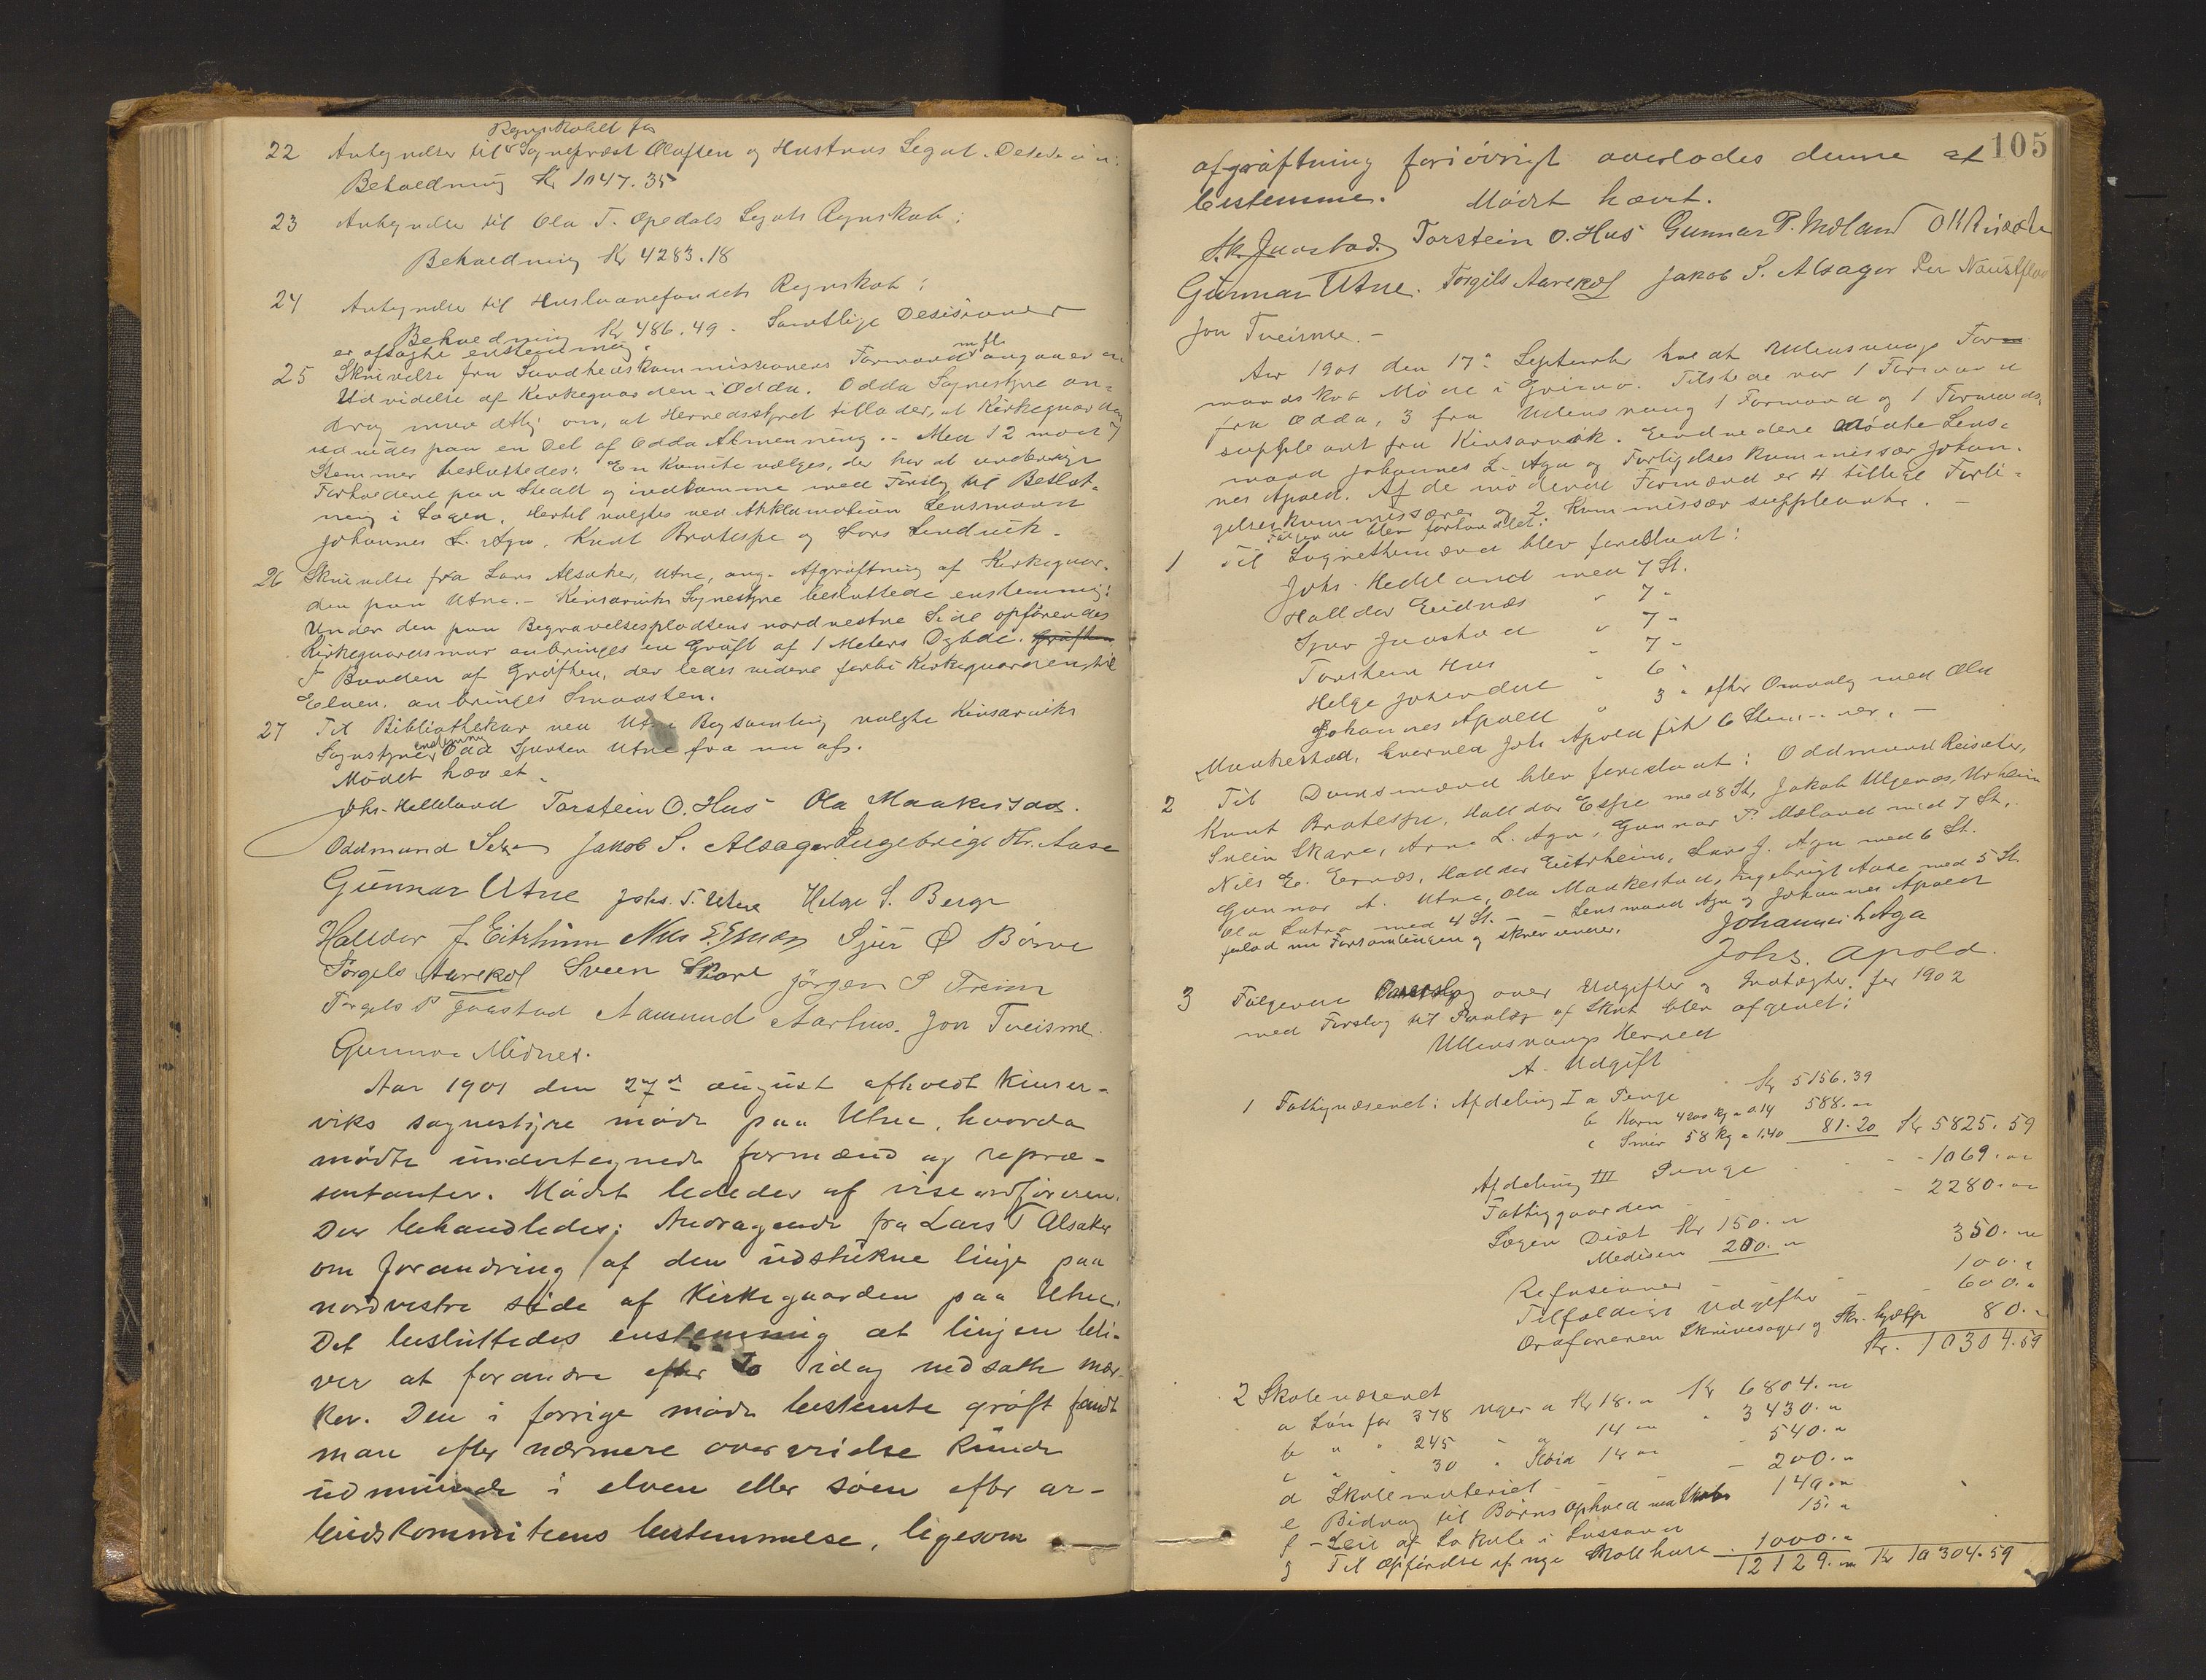 Regnskabet for
22 Antegnelser til Sogneprest Olafsen og Hustrus Legat. Desision:
Beholdning Kr 1047.35
23 Antegnelser til Ola T. Opedals Legats Regnskab:
Beholdning Kr 4283.18
24 Antegnelser til Huslaanefondets Regnskab:
Beholdning Kr 486.49. Samtlige Desisioner
er afsagte enstemmig.
25 Skrivelse fra Sundhedskommissionens Formand m fl. angaaende
Udvidelse af Kirkegaarden i Odda. Odda Sognestyre an-
drog om, at Herredsstyret tillader, at Kirkegaarden
udvides paa en Del af Odda Almenning. - Med 12 mod 7
Stemmer besluttedes: En Komite vælges, der har at undersøge
Forholdene paa Stedet og indkomme med Forslag til Beslut-
ning i Sagen. Hertil valgtes ved Akklamation Lensmand
Johannes L. Aga, Knut Bratespe og Lars Lindvik.
26 Skrivelse fra Lars Alsaker, Utne, ang. Afgrøftning af Kirkegaar-
den paa Utne. - Kinsarviks Sognestyre besluttede enstemmig:
Under den paa Begravelsespladsens nordvestre Side opførendes
Kirkegaardsmur anbringes en Grøft af 1 Meters Dybde. Grøften
I Bunden af Grøften, der ledes nedene forbi Kirkegaarden, til
Elven, anbringes Smaasten.
27 Til Bibliothekar ved Utne Bogsamling valgte Kinsarviks
Sognstyre enstemmig Odd Sjursen Utne fra nu af.
Mødet hævet.
Johs. Helleland Torstein O. Hus Ola Maakestad.
Oddmund Jakob S. Alsager Ingebrigt Hr. Aase
Gunnar Utne Johs. T. Utne Helge S. Berge
Halldor J. Eitrheim Nils E. Ernæs Sjur O Børve
Torgels Aarekol Sveen Skare Jørgen S Treim
Torgels P Jaastad Aamund Aarhus. Jon Tveisme.
Gunnar Midnes.
Aar 1901 den 27de august afholdt Kinser-
viks sognestyre møde paa Utne, hvorda
mødte undertegnede formænd og repræ-
sentanter. Mødet lededes af viseordføreren.
Der behandledes: Andragende fra Lars T Alsaker
om forandring af den udstukne linje paa
nordvestre side af Kirkegaarden paa Utne.
Det besluttedes enstemmig at linjen bli-
ver at forandre efter to idag nedsatte mær-
ker. Den i forrige møde bestemte grøft fandt
man efter nærmere overveielse kunde
udmunde i elven eller søen efter ar-
beidskommiteens bestemmelse, ligesom
105
afgrøftning forøvrigt overlodes denne at
bestemme. Mødet hævet.
Sk. Jaastad. Torstein O. Hus Gunnar P. Mæland O H Reisæte
Gunnar Utne. Torgils Aarekol Jakob S. Alsager Per Naustflot
Jon Tveisme. -
Aar 1901 den 17de September holdt Ullensvangs For-
mandskab Møde i Grimo. Tilstede var 1 Formand
fra Odda, 3 fra Ullensvang 1 Formand og 1 Formands-
suppleant fra Kinsarvik. Endvidere mødte Lens-
mand Johannes L. Aga og Forligelseskommissær Johan-
nes Apold. Af de mødende Formænd er 4 tillige Forli-
gelseskommissærer og 2 Kommissær suppleanter. -
Følgende blev forhandlet:
1 Til Lagrettemænd blev foreslaat:
Johs. Helleland med 7 St.
Halldor Eidnæs " 7 -
Sjur Jaastad " 7 -
Torstein Hus - 7 -
Helge Johandal " 6 -
Johannes Apold " 3 " efter Omvalg med Ola
Maakestad, hvorved Johs Apold fik 6 Stemmer. -
2 Til Domsmænd blev foreslaat: Oddmund Reisæter,
Knut Bratespe, Halldor Espe med 8 St, Jakob Ulgenæs, Urheim
Svein Skare, Arne L. Aga, Gunnar P. Mæland med 7 St.
Nils E. Ernæs, Halldor Eitrheim, Lars J. Aga med 6 St.
Gunnar A. Utne, Ola Maakestad, Ingebrigt Aase med 5 St.
Ola Lutro med 4 St. - Lensmand Aga og Johannes Apold
forlod nu Forsamlingen og skrev under.
Johannes L Aga
Johs. Apold.
3 Følgende Overslag over Udgifter og Indtægter for 1902
med Forslag til Paalæg af Skat blev afgivet:
Ullensvangs Herred
A. Udgift
1 Fattigvæsenet: Afdeling I a Penge Kr 5156.39
b Korn 4200 kg a 0.14 588.00
c Smør 58 kg a 1.40 81.20 Kr 5825.59
Afdeling III Penge - 1069.00
Fattiggaarden - 2280.00
Lægen Diæt Kr 150.00
Medisin 200.00 350.00
Refusioner 100.00
Tilfældige Udgifter 600.00
Ordføreren Skrivesager og Skr. hjælp 80.00
Kr. 10304.59
2 Skolevæsenet
a Løn for 378 Uger a Kr 18.00 Kr 6804.00
b " " 245 " a 14 00 " 3430.00
c " " 30 " Sløid 18 00 - 540.00
d Skolemateriel - 200.00
e Bidrag til Børns Ophold ved Skolen 140.00
f - Leie af Lokale i 15.00
g Til Opførelse af nye Skolehuse 1000.00
12129.00 Kr 10304.59